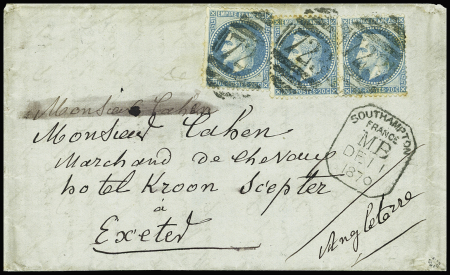 Monsieur Cahen
Monsieur Cahen
Marchand de Chevaux
hotel Kroon Scepter
à
Exeter
Angleterre
SOUTHAMPTON
FRANCE
MB
DE 11
1870